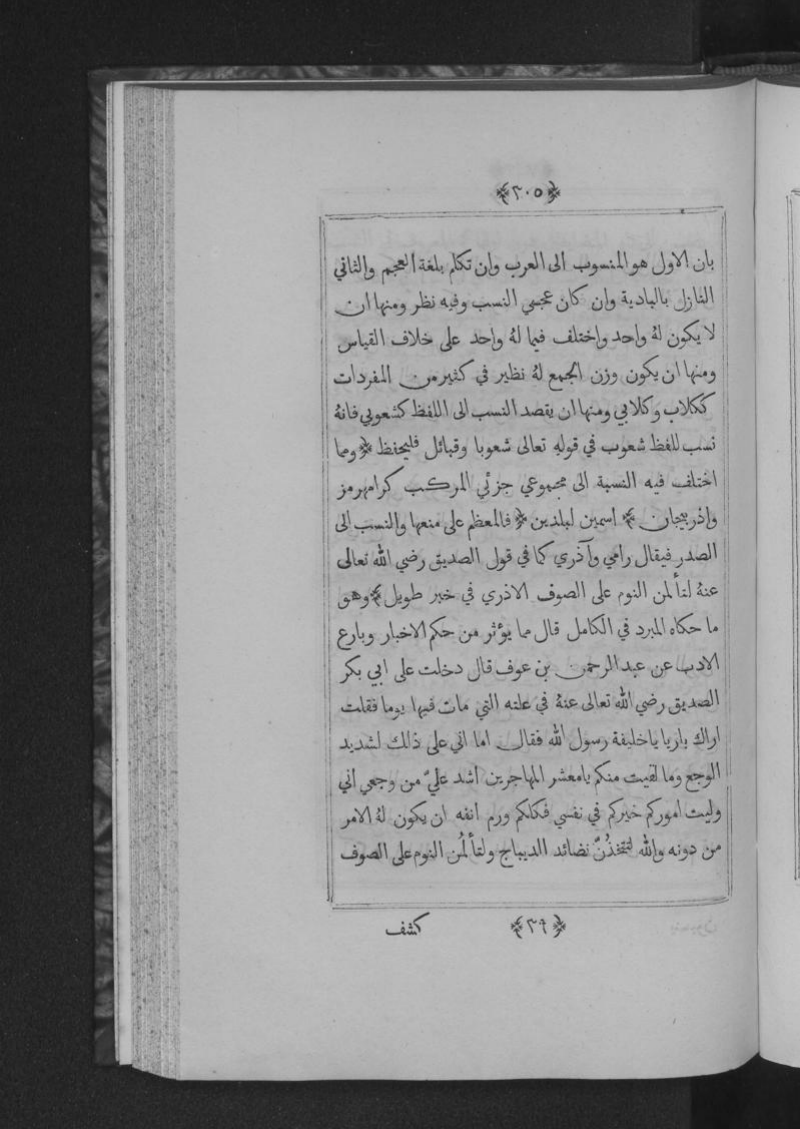 ﴿٣٠٥﴾
بان الاول هو المنسوب الى العرب وان تكلم بلغة العجم والثاني
النازل بالبادية وان كان عجمي النسب وفيه نظر ومنها ان
لا يكون لهُ واحد واختلف فيما لهُ واحد على خلاف القياس
ومنها ان يكون وزن الجمع لهُ نظير في كثير من المفردات
ككلاب وكلابي ومنها ان يقصد النسب الى اللفظ كشعوبي فانهُ
نسب للفظ شعوب في قوله تعالى شعوبا وقبائل فليحفظ ﴿ومما
اختلف فيه النسبة الى مجموعي جزئي المركب كرامهرمز
واذربيجان﴾ اسمين لبلدين ﴿فالمعظم على منعها والنسب الى
الصدر فيقال رامي وآذري كما في قول الصديق رضي الله تعالى
عنهُ لتألمن النوم على الصوف الاذري في خبر طويل﴾ وهو
ما حكاه المبرد في الكامل قال مما يؤثر من حكم الاخبار وبارع
الادب عن عبد الرحمن بن عوف قال دخلت على ابي بكر
الصديق رضي الله تعالى عنهُ في علته التي مات فيها يوما فقلت
اراك بارىا ياخليفة رسول الله فقال اما اني على ذلك لشديد
الوجع وما لقيت منكم يامعشر المهاجرين اشد عليّ من وجعي اني
وليت اموركم خيركم في نفسي فكلكم ورم انفه ان يكون لهُ الامر
من دونه والله لتتخذُنّ نضائد الديباج ولتألمُن النوم على الصوف
﴿٣٩﴾
كشف